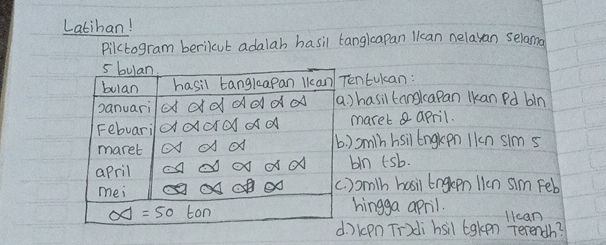 Latihan!
Piktogram berikut adalah hasil tangkapan ikan nelayan selama
5 bulan
bulan hasil tangkapan ikan
Januari
Febuari
maret
april
mei
= 50 ton
Tentukan:
a.) hasil tangkapan ikan pd bln
maret & april.
b.) jmlh hsil tngkpn ikn slm 5
bln tsb.
c.) jmlh hasil tngkpn ikn slm Feb
hingga april.
d.) kpn Trjdi hsil tgkpn ikan Terendh?